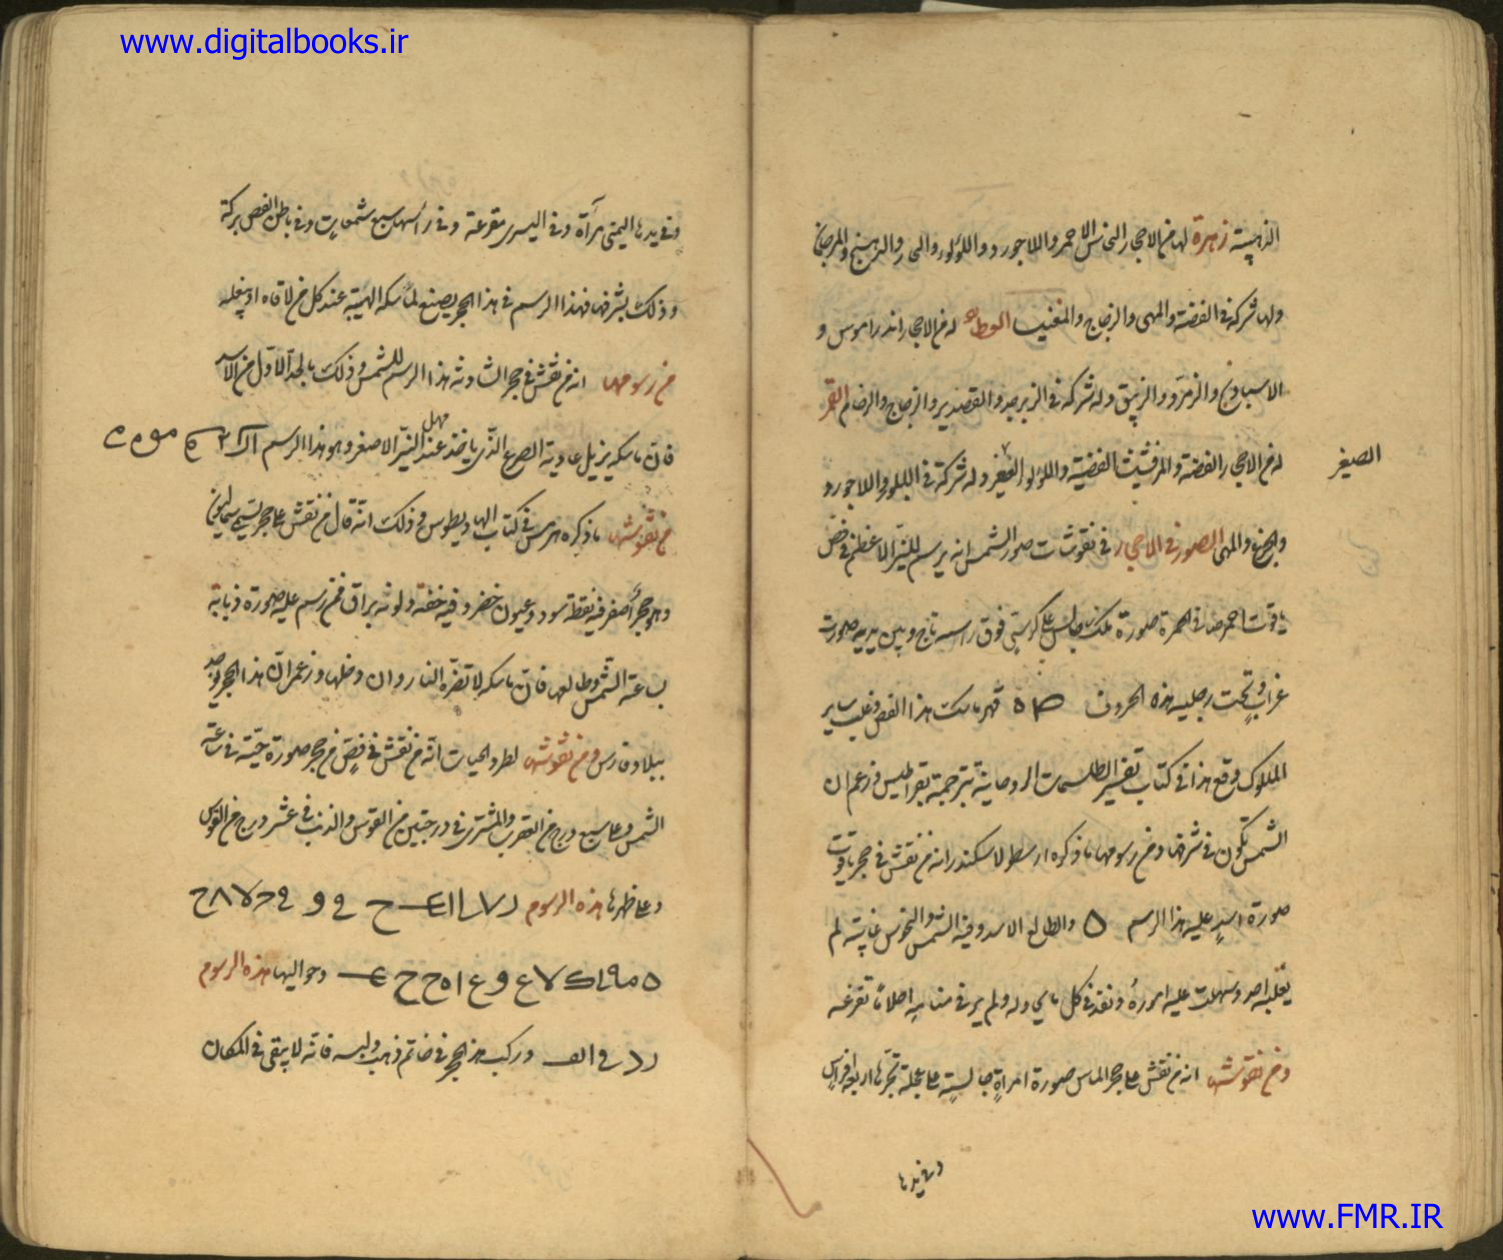 www.digitalbooks.ir
الذهبية زهرة لها من الاحجار النحاس الاحمر واللاجورد واللؤلؤ والدهنج والمرجان
ولها شركة في الفضة والمهى والزجاج والمغنيسيا العطارد له من الاحجار
والزمرد والزيبق وله شركة في الزبرجد والقصدير والزجاج والرخام القمر
له من الاحجار الفضة والمرقشيثا الفضية واللؤلؤ الصغير وله شركة في البلور واللاجورد
الصغير
والجزع والمهى الصور في الاحجار في نقوشات صور الشمس انه يرسم للنير الاعظم في فص
ياقوت احمر صافي الحمرة صورة ملك جالس على كرسي فوق راسه تاج وبين يديه صورت
غراب وتحت رجليه هذه الحروف قهر ماسك هذا الفص وغلب ساير
الملوك وقع هذا في كتاب تفسير الطلسمات الروحانية بترجمة بقراطيس وزعم ان
الشمس تكون في شرفها ومن رسومها ما ذكره ارسطو لاسكندر انه من نقش في حجر ياقوت
صورة اسد عليه هذا الرسم والطالع الاسد وفيه الشمس والنحوس غايبة لم
يغلبه احد وسهلت عليه اموره ونفذ في كل ما يحاوله ولم ير في منامه احلاما تفزعه
ومن نقوشها انه من نقش على حجر الماس صورة امراة جالسة على عجلة تجرها اربعة افراس
وفي يدها
وفي يدها اليمنى مرآة وفي اليسرى مقرعة وفي راسها سبع شمعات وفي باطن الفص بركة
وذلك بشرفها فهذا الرسم في هذا الحجر يصنع لماسكه الهيبة عند كل من لاقاه او
من رسومها انه من نقش في حجر الشاذنه هذا الرسم للشمس وذلك بالحد الاول من الاسد
فان ماسكه يزيل عادية الصرع الذي ياخذ عند النير الاصغر وهو هذا الرسم
من نقوشها ما ذكره هرمس في كتاب الهاديطوس من ذلك انه قال من نقش على حجر يسمى
وهو حجر أصفر فيه نقطة سود وعيون خضر وفيه خفة ولونه براق فمن رسم عليه صورة ذبابة
بساعة الشمس وطالعها فان ماسكه لا تضره النار وان دخلها وزعم ان هذا الحجر يوجد
ببلاد فارس ومن نقوشها لطرد الحيات انه من نقش في فص من حجر صورة حية في ساعة
الشمس وعلى سبع درج من العقرب والمشترى في درجتين من القوس والذنب في عشر درج من القوس
وعلى ظهرها هذه الرسوم
وحواليها هذه الرسوم
وركب هذا الحجر في خاتم ذهب ولبسه فانه لا يبقى في المكان
www.FMR.IR